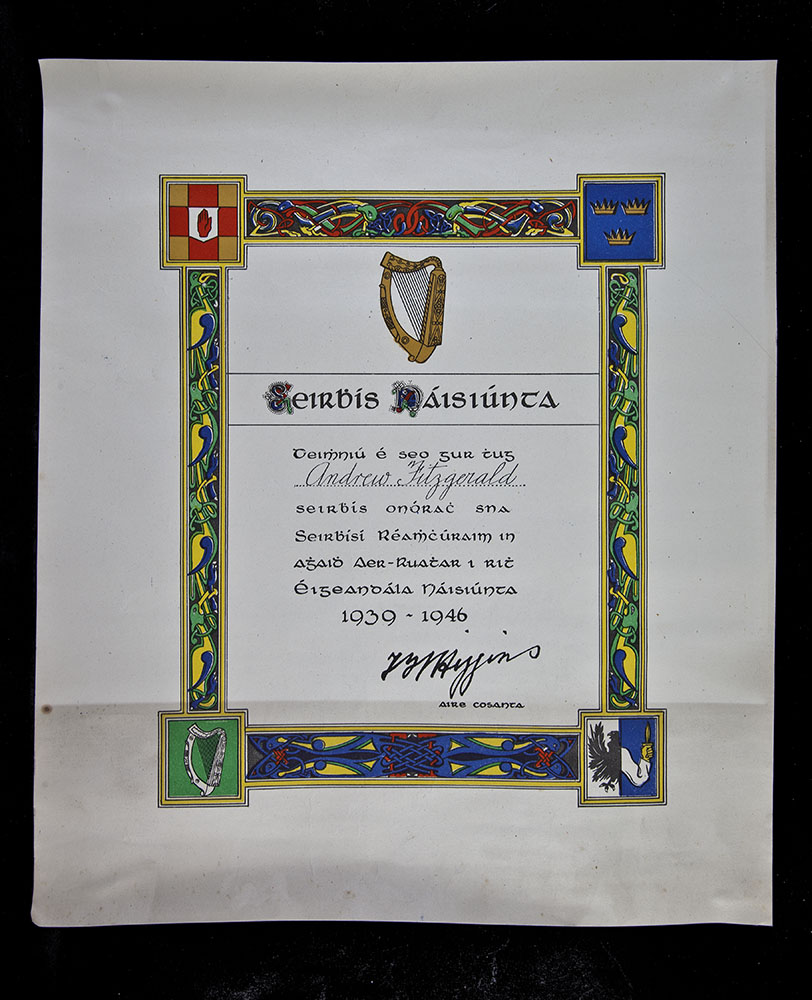 Seirḃís Náisiúnta
Deiṁniú é seo gur ṫug
Andrew Fitzgerald
seirḃís onóraċ sna
Seirḃísí Réaṁċúraim in
aġaiḋ Aer-Ruaṫar i riṫ
Éigeandála Náisiúnta
1939 - 1946
aire cosanta